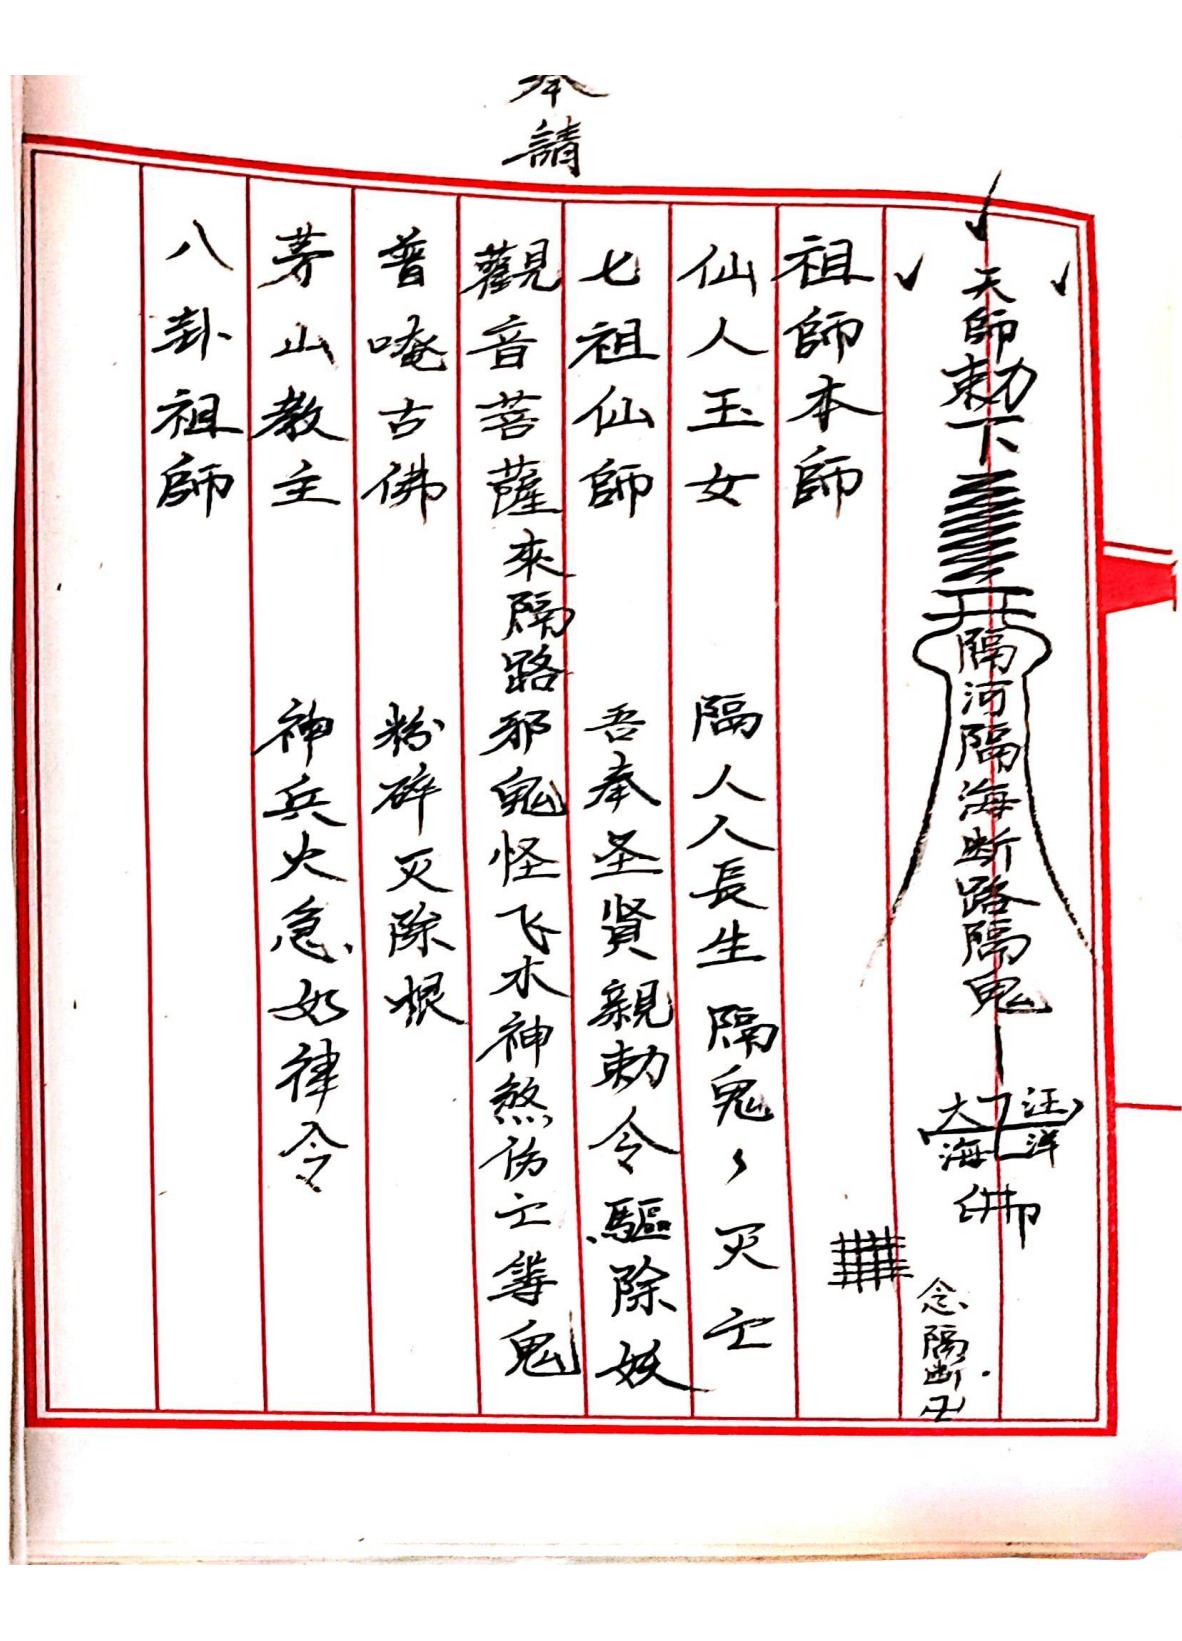 天師勅下
隔河隔海断路隔鬼
大海
汪洋
佛印
念隔断
奉請
祖師本師
仙人玉女
七祖仙師
觀音菩薩來隔路
普唵古佛
茅山教主
八卦祖師
隔人人長生隔鬼々灭亡
吾奉圣賢親勅令驅除妖
邪鬼怪飞水神煞伤亡等鬼
粉碎灭除根
神兵火急如律令